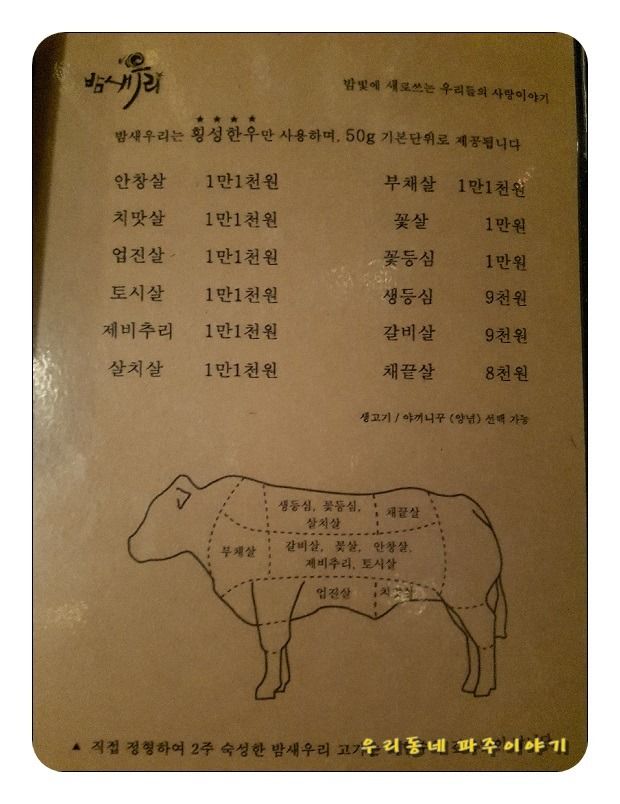 밤새우리
밤빛에 새로쓰는 우리들의 사랑이야기
밤새우리는 횡성한우만 사용하며, 50g 기본단위로 제공됩니다
안창살 1만1천원
치맛살 1만1천원
업진살 1만1천원
토시살 1만1천원
제비추리 1만1천원
살치살 1만1천원
부채살 1만1천원
꽃살 1만원
꽃등심 1만원
생등심 9천원
갈비살 9천원
채끝살 8천원
생고기 / 야끼니꾸 (양념) 선택 가능
생등심, 꽃등심,
살치살
채끝살
부채살
갈비살, 꽃살, 안창살,
제비추리, 토시살
업진살
치맛살
▲ 직접 정형하여 2주 숙성한 밤새우리 고기는
우리동네 파주이야기